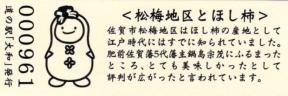 000961
道の駅「大和」発行
＜松梅地区とほし柿＞
佐賀市松梅地区はほし柿の産地として
江戸時代にはすでに知られていました。
肥前佐賀藩5代藩主鍋島宗茂にふるまった
ところ、とても美味しかったとして
評判が広がったと言われています。